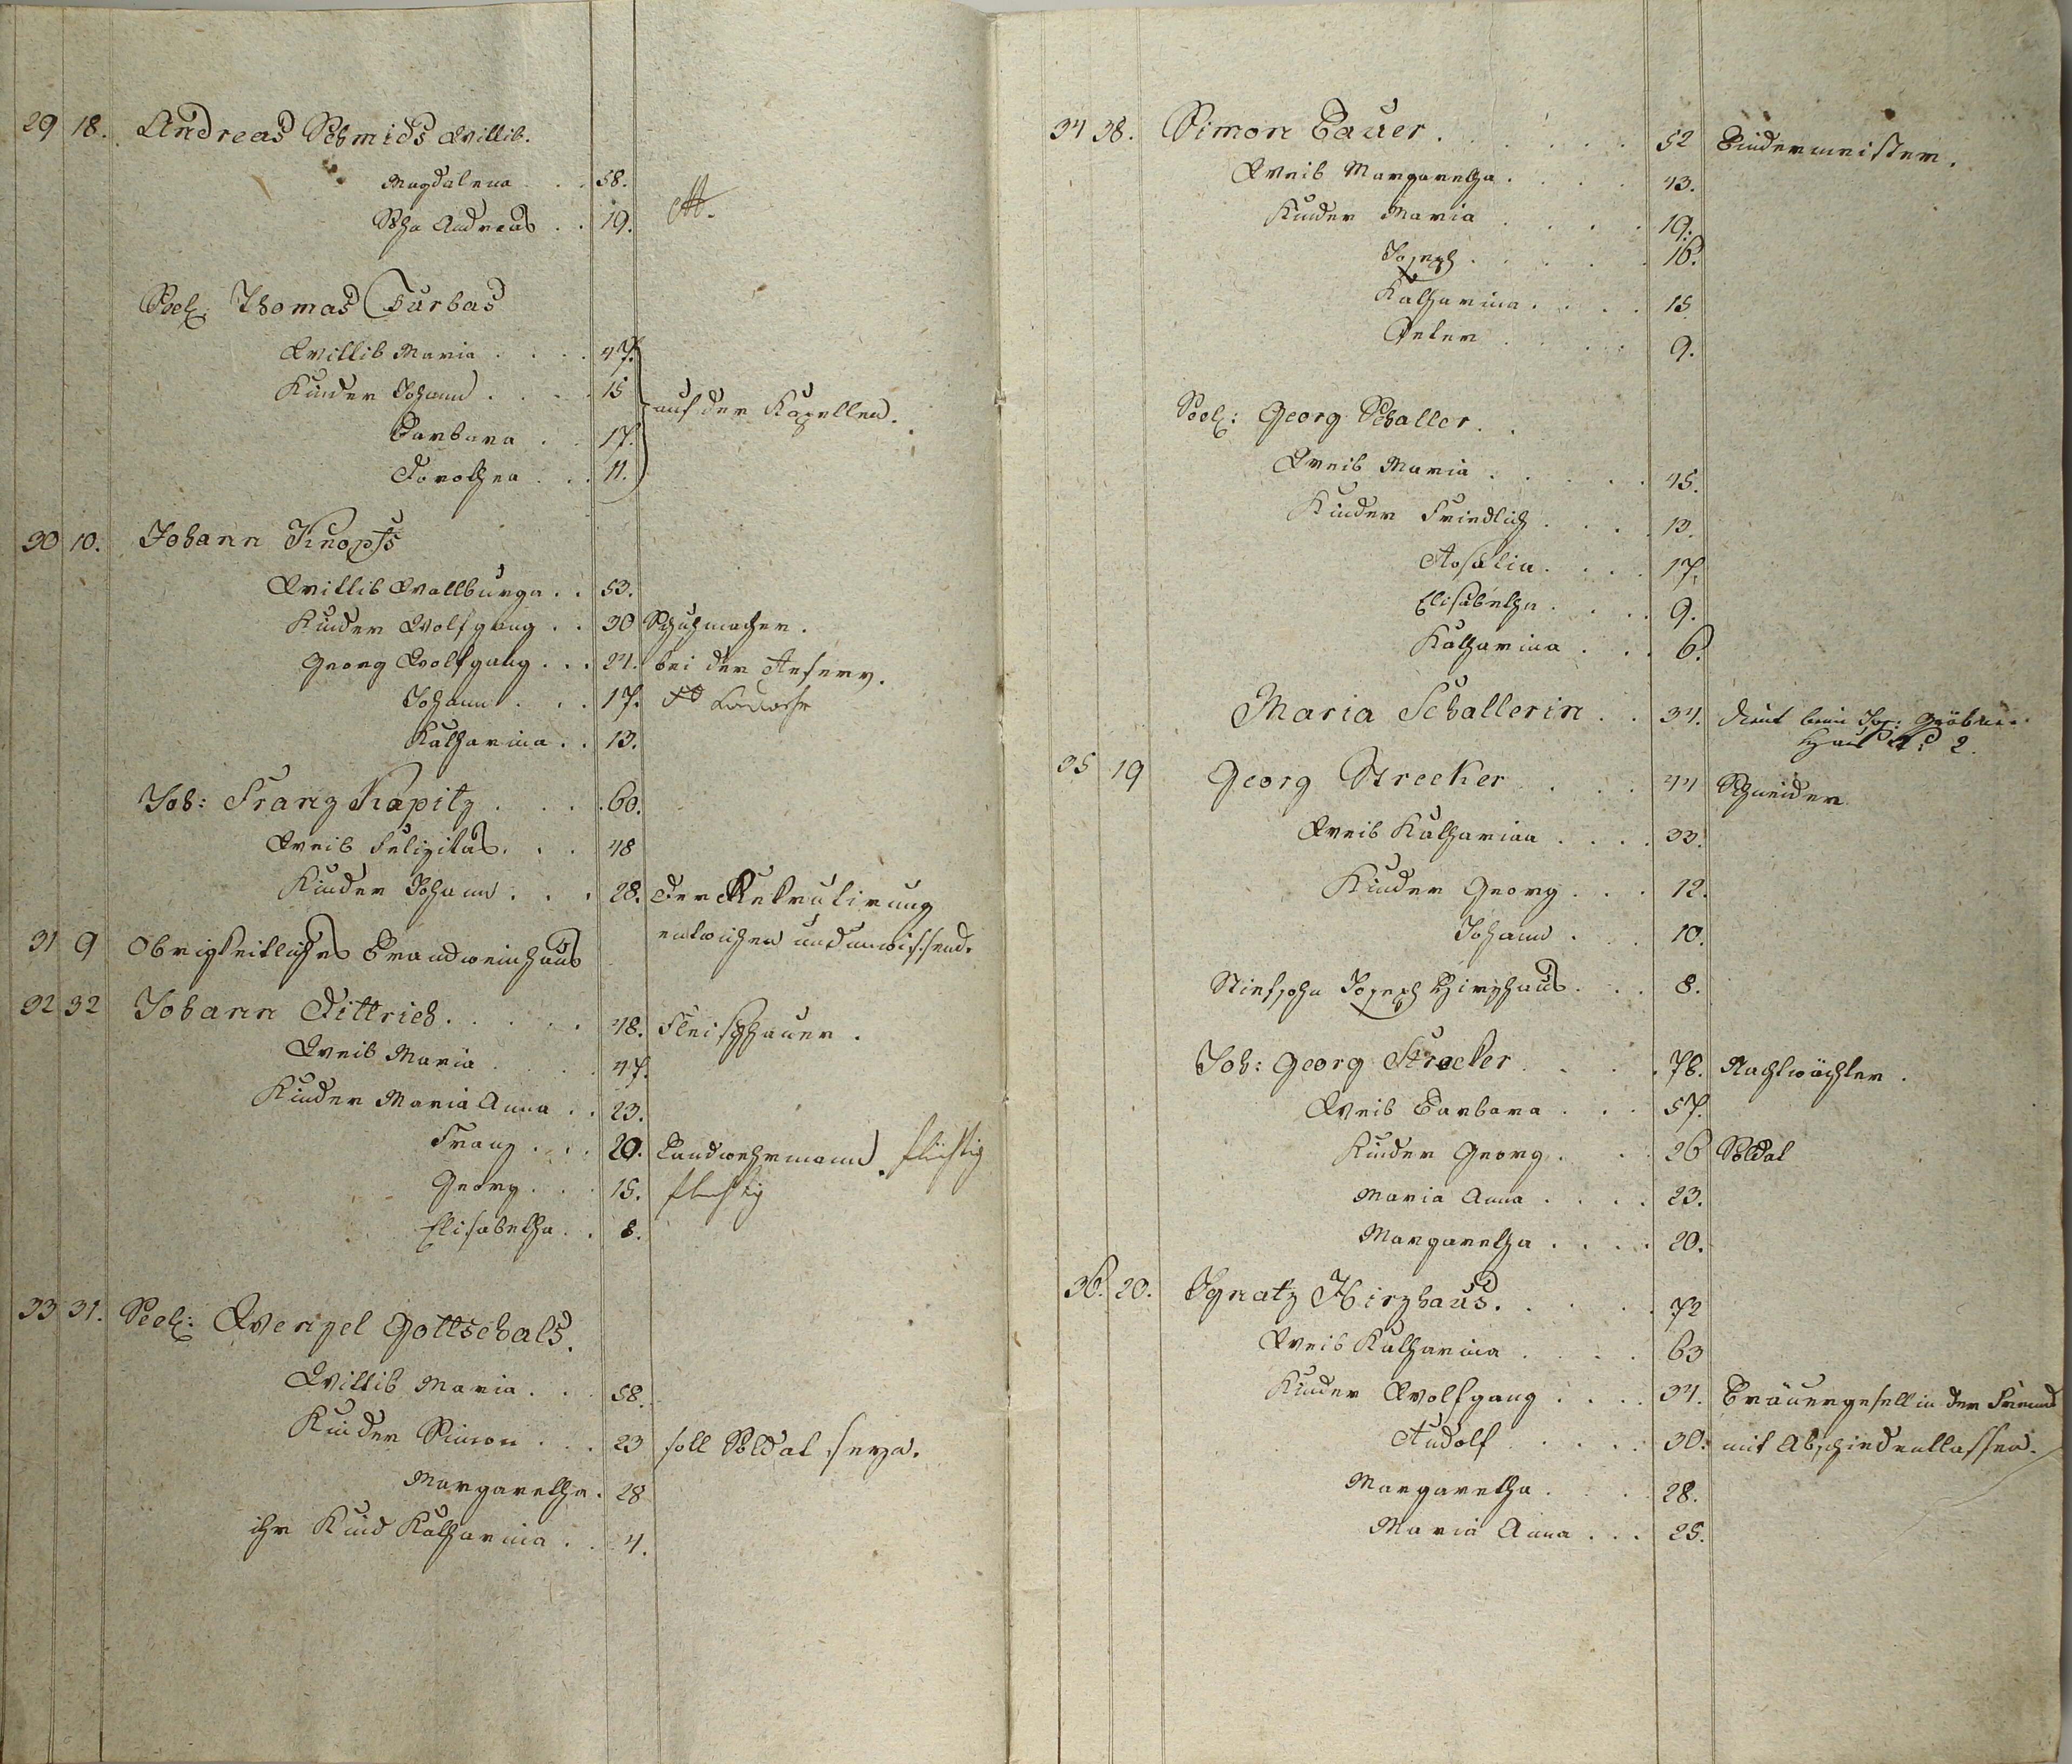 29 18. Andreas Schmids Wittib.
Magdalena . . . 58.
Sohn Andreas . . 19.
Seel: Thomas Turbas
Wittib Maria . . . . 47.
Kinder Johann . . . . 15
auf der Kapellen.
Barbara . . 17.
Dorothea . . . 11.
30 10. Johann Knopfs
Wittib Wallburga . . 53.
Kinder Wolfgang . . 30 Schuhmacher.
Georg Wolfgang . . . 24. bei der Reserv.
Johann . . . 17.
Katharina . . 13.
Joh: Franz Kapitz . . . . 60.
Weib Felizitas . . . 48
Kinder Johann . . . 28. Der Rekrutirung
entwichen und unwissend.
31 9 Obrigkeitliches Brandweinhaus
32 32 Johann Dittrich . . . . . 48. Fleischhauer.
Weib Maria . . . . 47.
Kinder Maria Anna . . 23.
Franz . . . 20. Landwehrmann. flüchtig
Georg . . . 15. flüchtig
Elisabetha . . 8.
33 31. Seel: Wenzel Gottschals.
Wittib Maria . . . 58.
Kinder Simon . . . 23 soll Soldat seyn.
Margaretha . 28
ihr Kind Katharina . . 4.
34 38. Simon Bauer . . . . . . 52 Bindermeister.
Weib Margaretha . . . . 43.
Kinder Maria . . . . 19.
Joseph . . . . . 16.
Katharina . . . . 15
Peter . . . . 9.
Seel: Georg Schaller . .
Weib Maria . . . . . 45.
Kinder Friedlich . . . . 13.
Rosalia . . . . 17.
Elisabetha . . . . 9.
Katharina . . . 6.
Maria Schallerin . . 34. dient beim Jos:
Haus No 2.
35 19 Georg Strecker . . . . 44 Schneider
Weib Katharina . . . . 33.
Kinder Georg . . . 12.
Johann . . . 10.
Stiefsohn Joseph Hirzhaus . . . 8.
Joh: Georg Strecker . . . . . 76. Nachtwächter.
Weib Barbara . . . 57.
Kinder Georg . . . 26 Soldat
Maria Anna . . . . 23.
Margaretha . . . . 20.
36. 20. Ignatz Hirzhaus . . . . . 72
Weib Katharina . . . . 63
Kinder Wolfgang . . . . 34. Bräuergesell in der Fremd
Rudolf . . . . . 30. mit Abschied entlassen.
Margaretha . . . 28.
Maria Anna . . . 25.